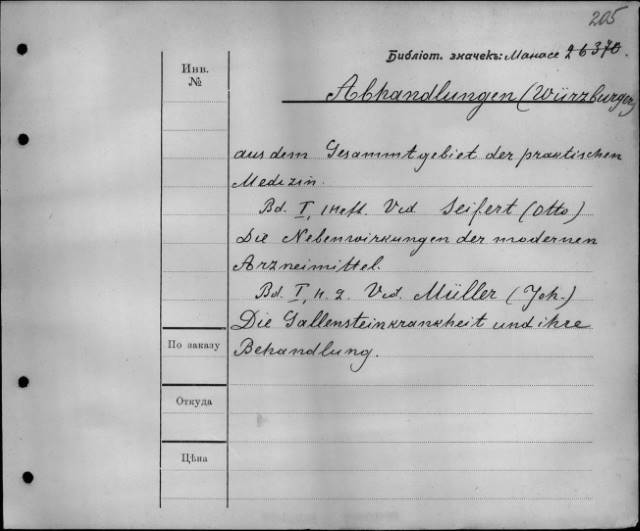 205
Библіот. значекъ: Манасе 26370.
Инв.
№
Abhandlungen (Würzburger)
aus dem Gesammtgebiet der praktischen
Medizin.
Bd. I, 1 Heft. Vid. Seifert (Otto)
Die Nebenwirkungen der modernen
Arzneimittel.
Bd. I, H. 2. Vid. Müller (Joh.)
Die Gallensteinkrankheit und ihre
По заказу
Behandlung.
Откуда
Цѣна